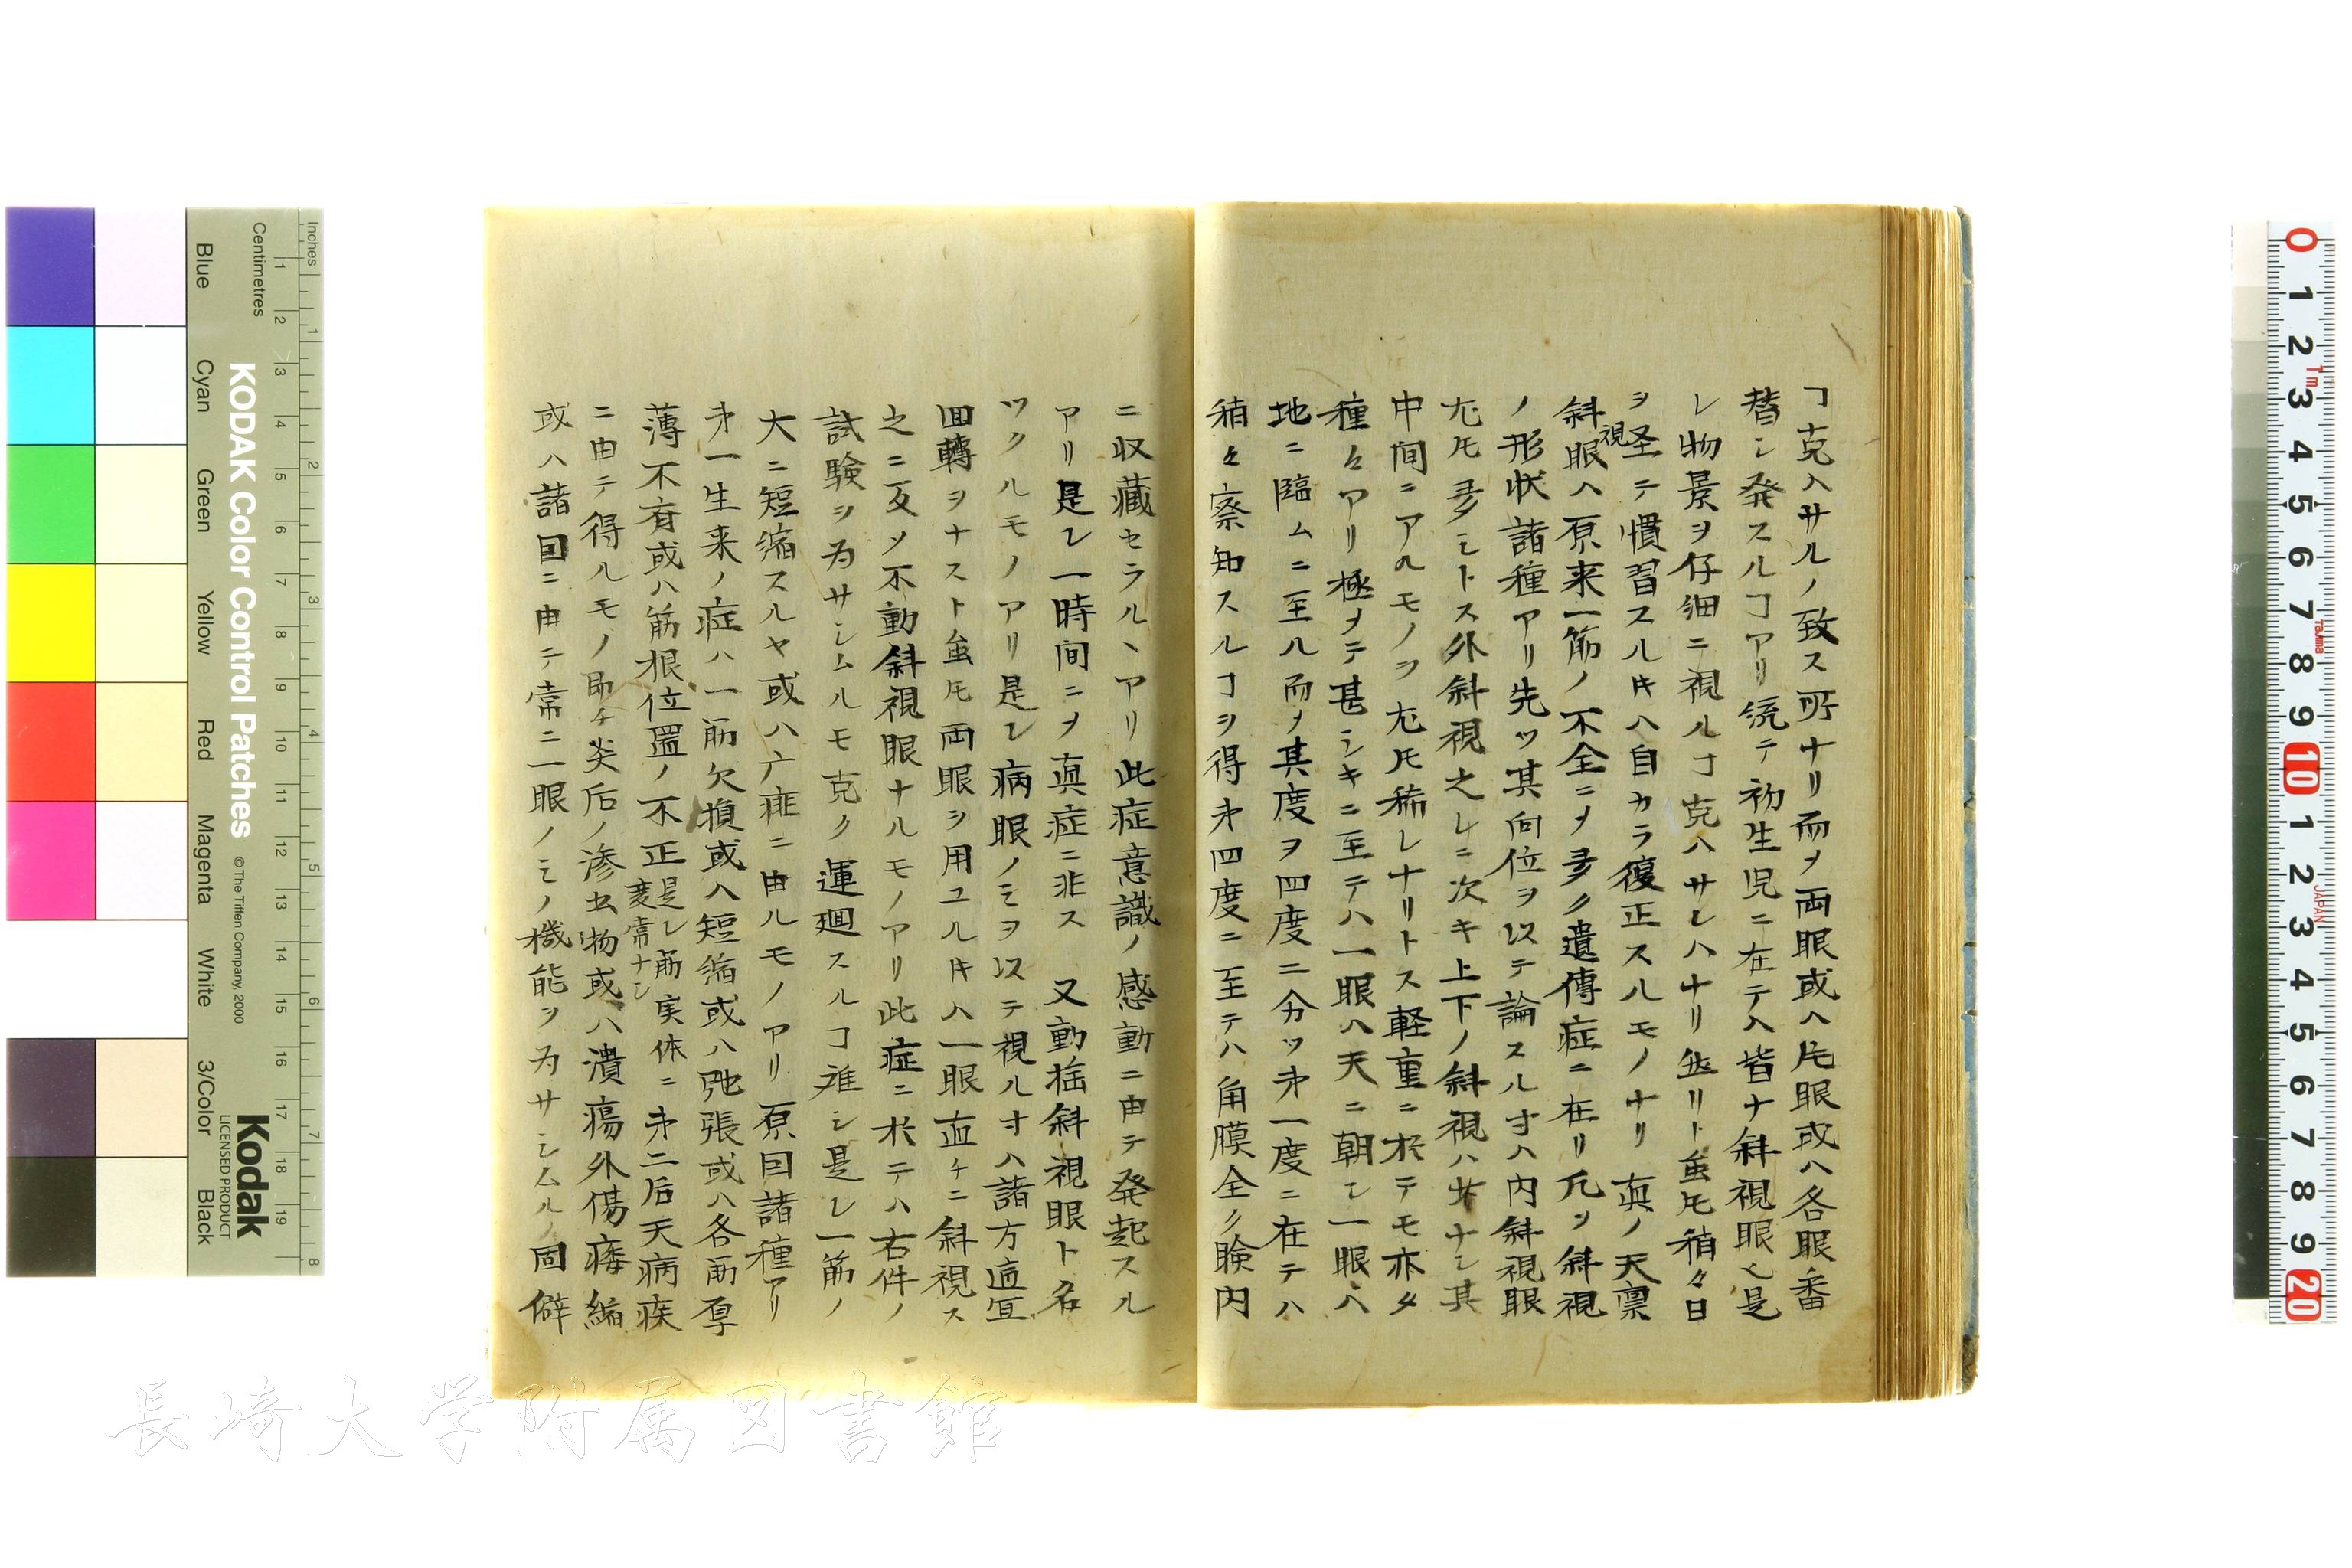 ヿ克ハサルノ致ス所ナリ而ヲ両眼或ハ片眼或ハ各眼番
替シ発スルヿアリ流テ初生児ニ在テハ皆ナ斜視眼也是
レ物景ヲ仔細ニ視ルヿ克ハサレハナリ然リト虽𪜈稍々日
ヲ経テ慣習スル𪜈ハ自カラ復正スルモノナリ真ノ天禀
斜視眼ハ原来一筋ノ不全ニメ多ク遺傳症ニ在リ凡ソ斜視
ノ形状諸種アリ先ツ其向位ヲ以テ論スル寸ハ内斜視眼
尤𪜈多シトス外斜視之レニ次キ上下ノ斜視ハ少ナシ其
中間ニアルモノヲ尤𪜈稀レナリトス軽重ニ於テモ亦タ
種々アリ極メテ甚シキニ至テハ一眼ハ天ニ朝シ一眼ハ
地ニ臨ムニ至ル而メ其度ヲ四度ニ分ツ第一度ニ在テハ
稍々察知スルヿヲ得第四度ニ至テハ角膜全ク瞼内
ニ収蔵セラルヽアリ此症意識ノ感動ニ由テ発起スル
アリ是レ一時間ニヲ真症ニ非ス 又動揺斜視眼ト名
ツクルモノアリ是レ病眼ノミヲ以テ視ル寸ハ諸方適宜
回轉ヲナスト虽𪜈両眼ヲ用ユル𪜈ハ一眼直チニ斜視ス
之ニ反ソ不動斜視眼ナルモノアリ此症ニ於テハ右件ノ
試験ヲ为サシムルモ克ク運廻スルヿ難シ是レ一筋ノ
大ニ短縮スルヤ或ハ痱ニ由ルモノアリ原因諸種アリ
第一生来ノ症ハ一筋欠損或ハ短縮或ハ弛張或ハ各筋厚
薄不斉或ハ筋根位置ノ不正是レ筋実体ニ変常ナシ第二后天病疾
ニ由テ得ルモノ即チ炎后ノ滲出物或ハ潰瘍外傷瘘縮
或ハ諸因ニ由テ常ニ一眼ノミノ機能ヲ为サシムルノ固僻
Inches
Centimetres
KODAK Color Control Patches
© The Tiffen Company, 2000
Kodak
LICENSED PRODUCT
Blue
Cyan
Green
Yellow
Red
Magenta
White
3/Color
Black
長崎大学附属図書館